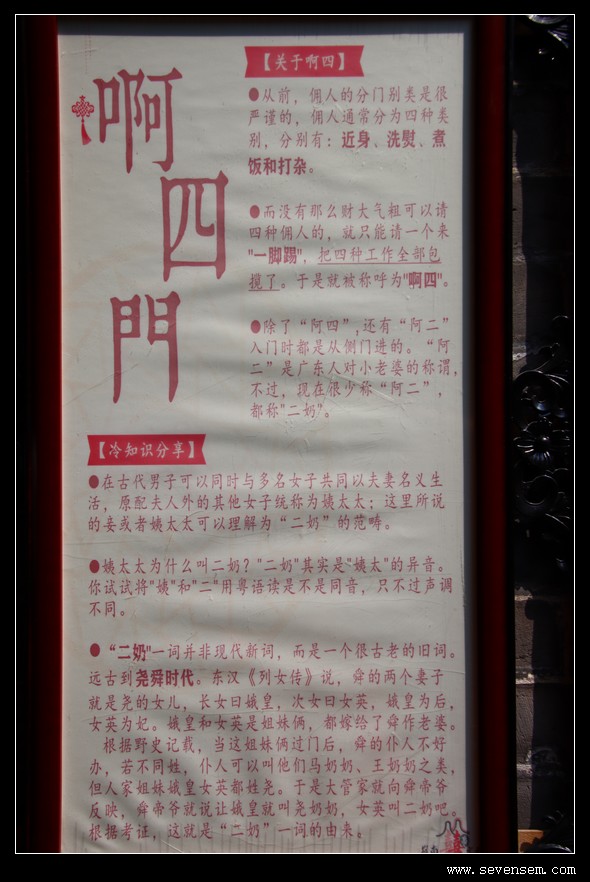 啊四門
【关于啊四】
●从前，佣人的分门别类是很
严谨的，佣人通常分为四种类
别，分别有：近身、洗熨、煮
饭和打杂。
●而没有那么财大气粗可以请
四种佣人的，就只能请一个来
"一脚踢"，把四种工作全部包
揽了。于是就被称呼为"啊四"。
●除了“阿四”,还有“阿二”
入门时都是从侧门进的。“阿
二”是广东人对小老婆的称谓，
不过，现在很少称“阿二”，
都称"二奶"。
【冷知识分享】
●在古代男子可以同时与多名女子共同以夫妻名义生
活，原配夫人外的其他女子统称为姨太太；这里所说
的妾或者姨太太可以理解为“二奶”的范畴。
●姨太太为什么叫二奶？"二奶"其实是"姨太"的异音。
你试试将"姨"和"二"用粤语读是不是同音，只不过声调
不同。
●“二奶"一词并非现代新词，而是一个很古老的旧词。
远古到尧舜时代。东汉《列女传》说，舜的两个妻子
就是尧的女儿，长女曰娥皇，次女曰女英，娥皇为后，
女英为妃。娥皇和女英是姐妹俩，都嫁给了舜作老婆。
根据野史记载，当这姐妹俩过门后，舜的仆人不好
办，若不同姓，仆人可以叫他们马奶奶、王奶奶之类，
但人家姐妹娥皇女英都姓尧。于是大管家就向舜帝爷
反映，舜帝爷就说让娥皇就叫尧奶奶，女英叫二奶吧。
根据考证，这就是“二奶”一词的由来。
www.sevensem.com